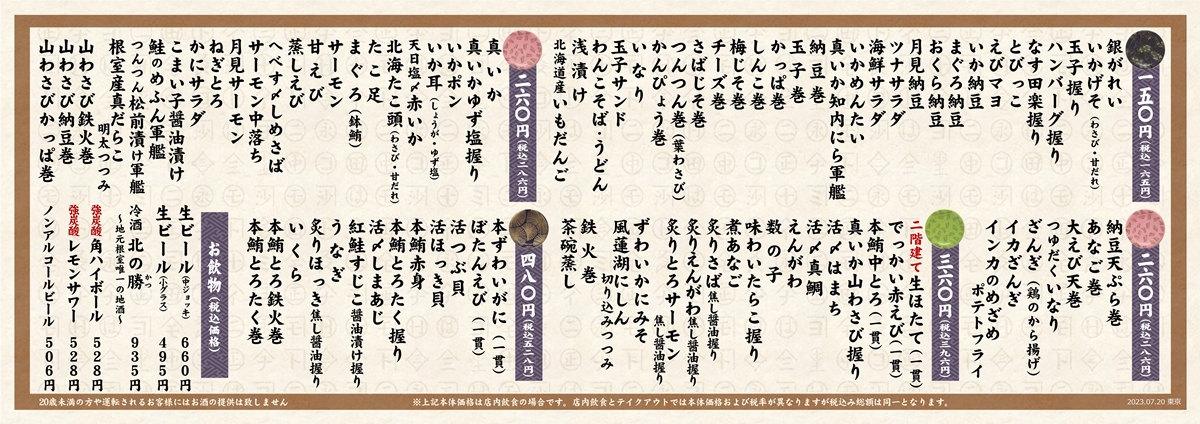 一五〇円(税込一六五円)
銀がれい
いかげそ(わさび・甘だれ)
玉子握り
ハンバーグ握り
なす田楽握り
とびっこ
えびマヨ
いか納豆
まぐろ納豆
おくら納豆
月見納豆
ツナサラダ
海鮮サラダ
いかめんたい
真いか知内にら軍艦
納豆巻
玉子巻
かっぱ巻
しんこ巻
梅じそ巻
チーズ巻
さばじそ巻
つんつん巻(葉わさび)
かんぴょう巻
いなり
玉子サンド
わんこそば・うどん
浅漬け
北海道産いもだんご
二六〇円(税込二八六円)
真いか
真いかゆず塩握り
いかポン
いか耳(しょうが・ゆず塩)
天日塩〆赤いか
北海たこ頭(わさび・甘だれ)
たこ足
まぐろ(鉢鮪)
サーモン
甘えび
蒸しえび
へべす〆しめさば
サーモン中落ち
月見サーモン
ねぎとろ
かにサラダ
こまい子醤油漬け
鮭のめふん軍艦
つんつん松前漬け軍艦
根室産真だらこ
明太つつみ
山わさび鉄火巻
山わさび納豆巻
山わさびかっぱ巻
二六〇円(税込二八六円)
納豆天ぷら巻
あなご巻
大えび天巻
つゆだくいなり
ざんぎ(鶏のから揚げ)
イカざんぎ
インカのめざめ
ポテトフライ
三六〇円(税込三九六円)
二階建て生ほたて(一貫)
でっかい赤えび(一貫)
本鮪中とろ(一貫)
真いか山わさび握り
活〆真鯛
活〆はまち
えんがわ
数の子
味わいたらこ握り
煮あなご
炙りさば焦し醤油握り
炙りえんがわ焦し醤油握り
炙りとろサーモン
焦し醤油握り
ずわいかにみそ
風蓮湖にしん
切り込みつつみ
鉄火巻
茶碗蒸し
四八〇円(税込五二八円)
本ずわいがに(一貫)
ぼたんえび(一貫)
活つぶ貝
活ほっき貝
本鮪赤身
本鮪とろたく握り
活〆しまあじ
紅鮭すじこ醤油漬け握り
うなぎ
炙りほっき焦し醤油握り
いくら
本鮪とろ鉄火巻
本鮪とろたく巻
お飲物(税込価格)
生ビール(中ジョッキ) 660円
生ビール(小グラス) 495円
冷酒 北の勝 935円
かつ
〜地元根室唯一の地酒〜
強炭酸 角ハイボール 528円
強炭酸 レモンサワー 528円
ノンアルコールビール 506円
20歳未満の方や運転されるお客様にはお酒の提供は致しません
※上記本体価格は店内飲食の場合です。店内飲食とテイクアウトでは本体価格および税率が異なりますが税込み総額は同一となります。
2023.07.20 東京